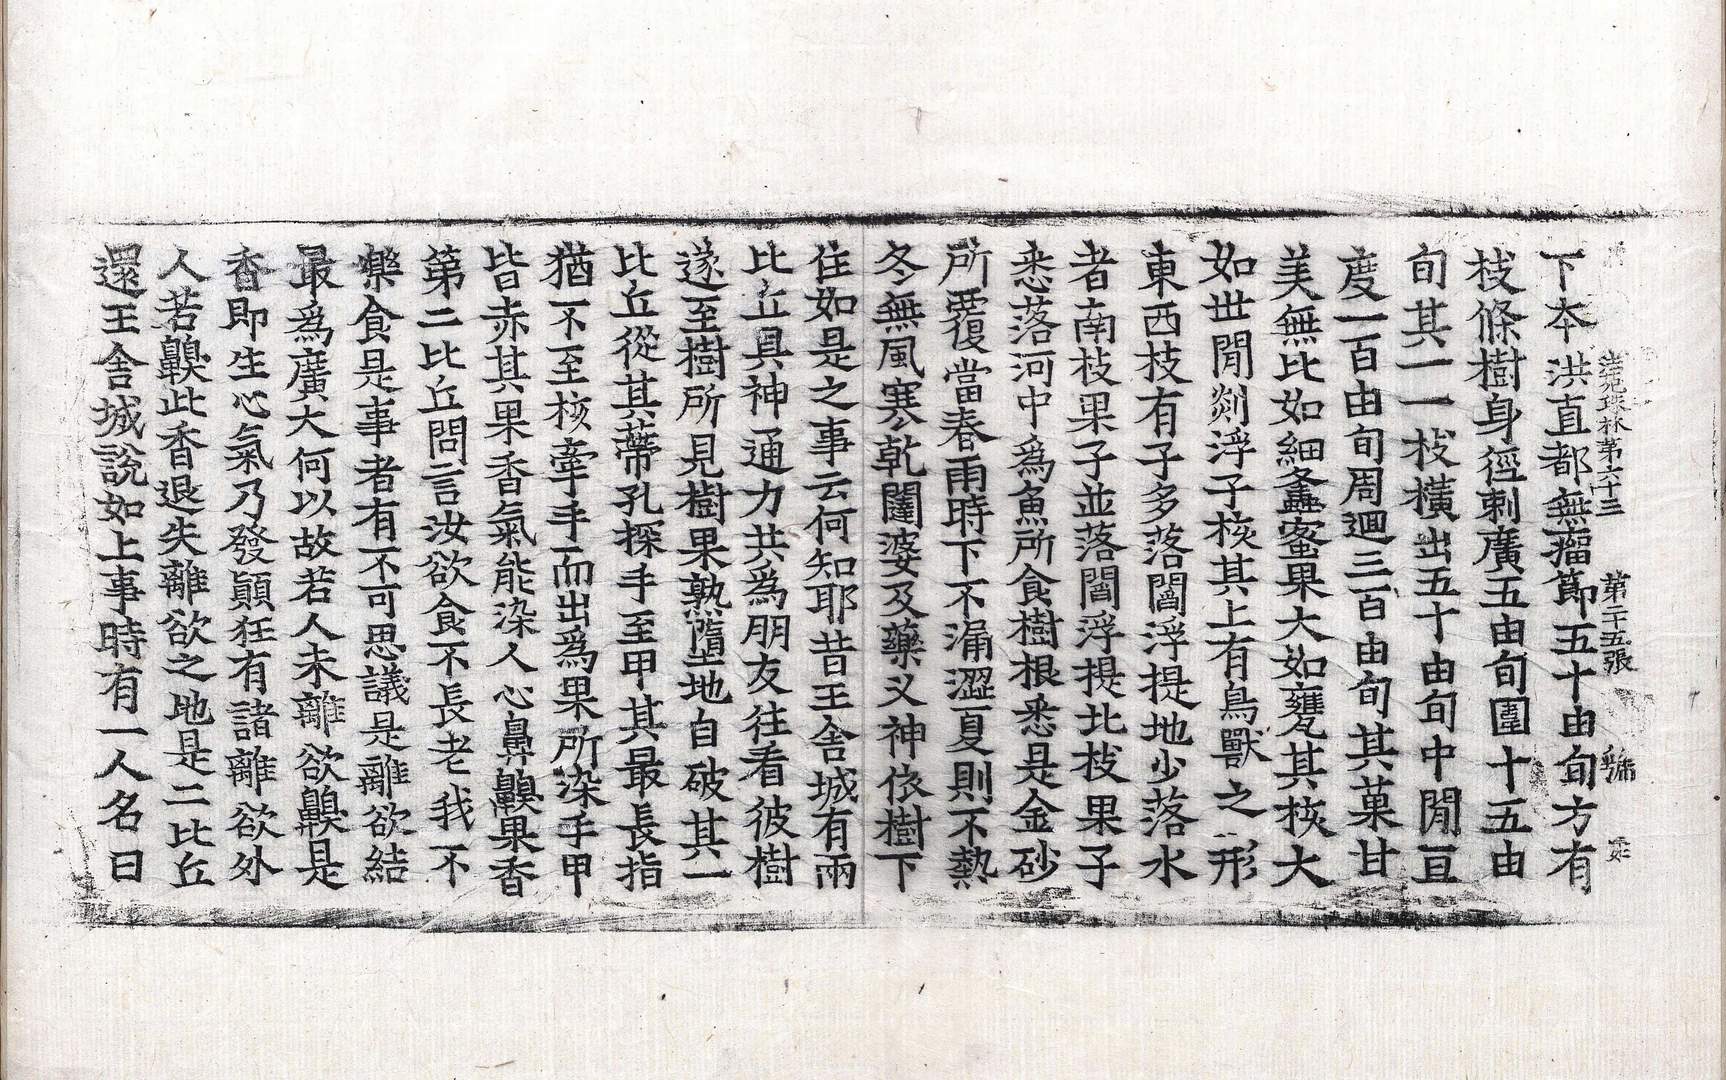 法苑珠林第六十三 第二十五張 號
下本洪直都無瘤節五十由旬方有
枝條樹身徑刺廣五由旬圍十五由
旬其一一枝橫出五十由旬中閒亘
度一百由旬周迴三百由旬其菓甘
美無比如細蠭蜜果大如甕其核大
如世閒剡浮子核其上有鳥獸之形
東西枝有子多落閻浮提地少落水
者南枝果子並落閻浮提北枝果子
悉落河中爲魚所食樹根悉是金砂
所覆當春雨時下不漏濕夏則不熱
冬無風寒乾闥婆及藥叉神依樹下
住如是之事云何知耶昔王舍城有兩
比丘具神通力共爲朋友往看彼樹
遂至樹所見樹果熟墮地自破其一
比丘從其蔕孔探手至甲其最長指
猶不至核牽手而出爲果所染手甲
皆赤其果香氣能染人心鼻齅果香
第二比丘問言汝欲食不長老我不
樂食是事者有不可思議是離欲結
最爲廣大何以故若人未離欲齅是
香即生心氣乃發顛狂有諸離欲外
人若齅此香退失離欲之地是二比丘
還王舍城說如上事時有一人名曰